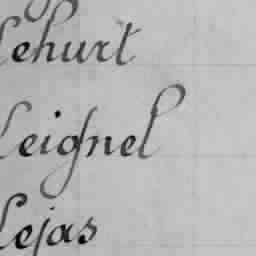 Lehurt
Leignel
Lejas